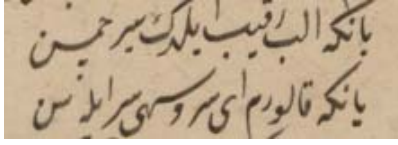 یانکه الب رقیب ایلدك سیر چمن
یانکه قالورم ای سرو سهی سر ایله سن